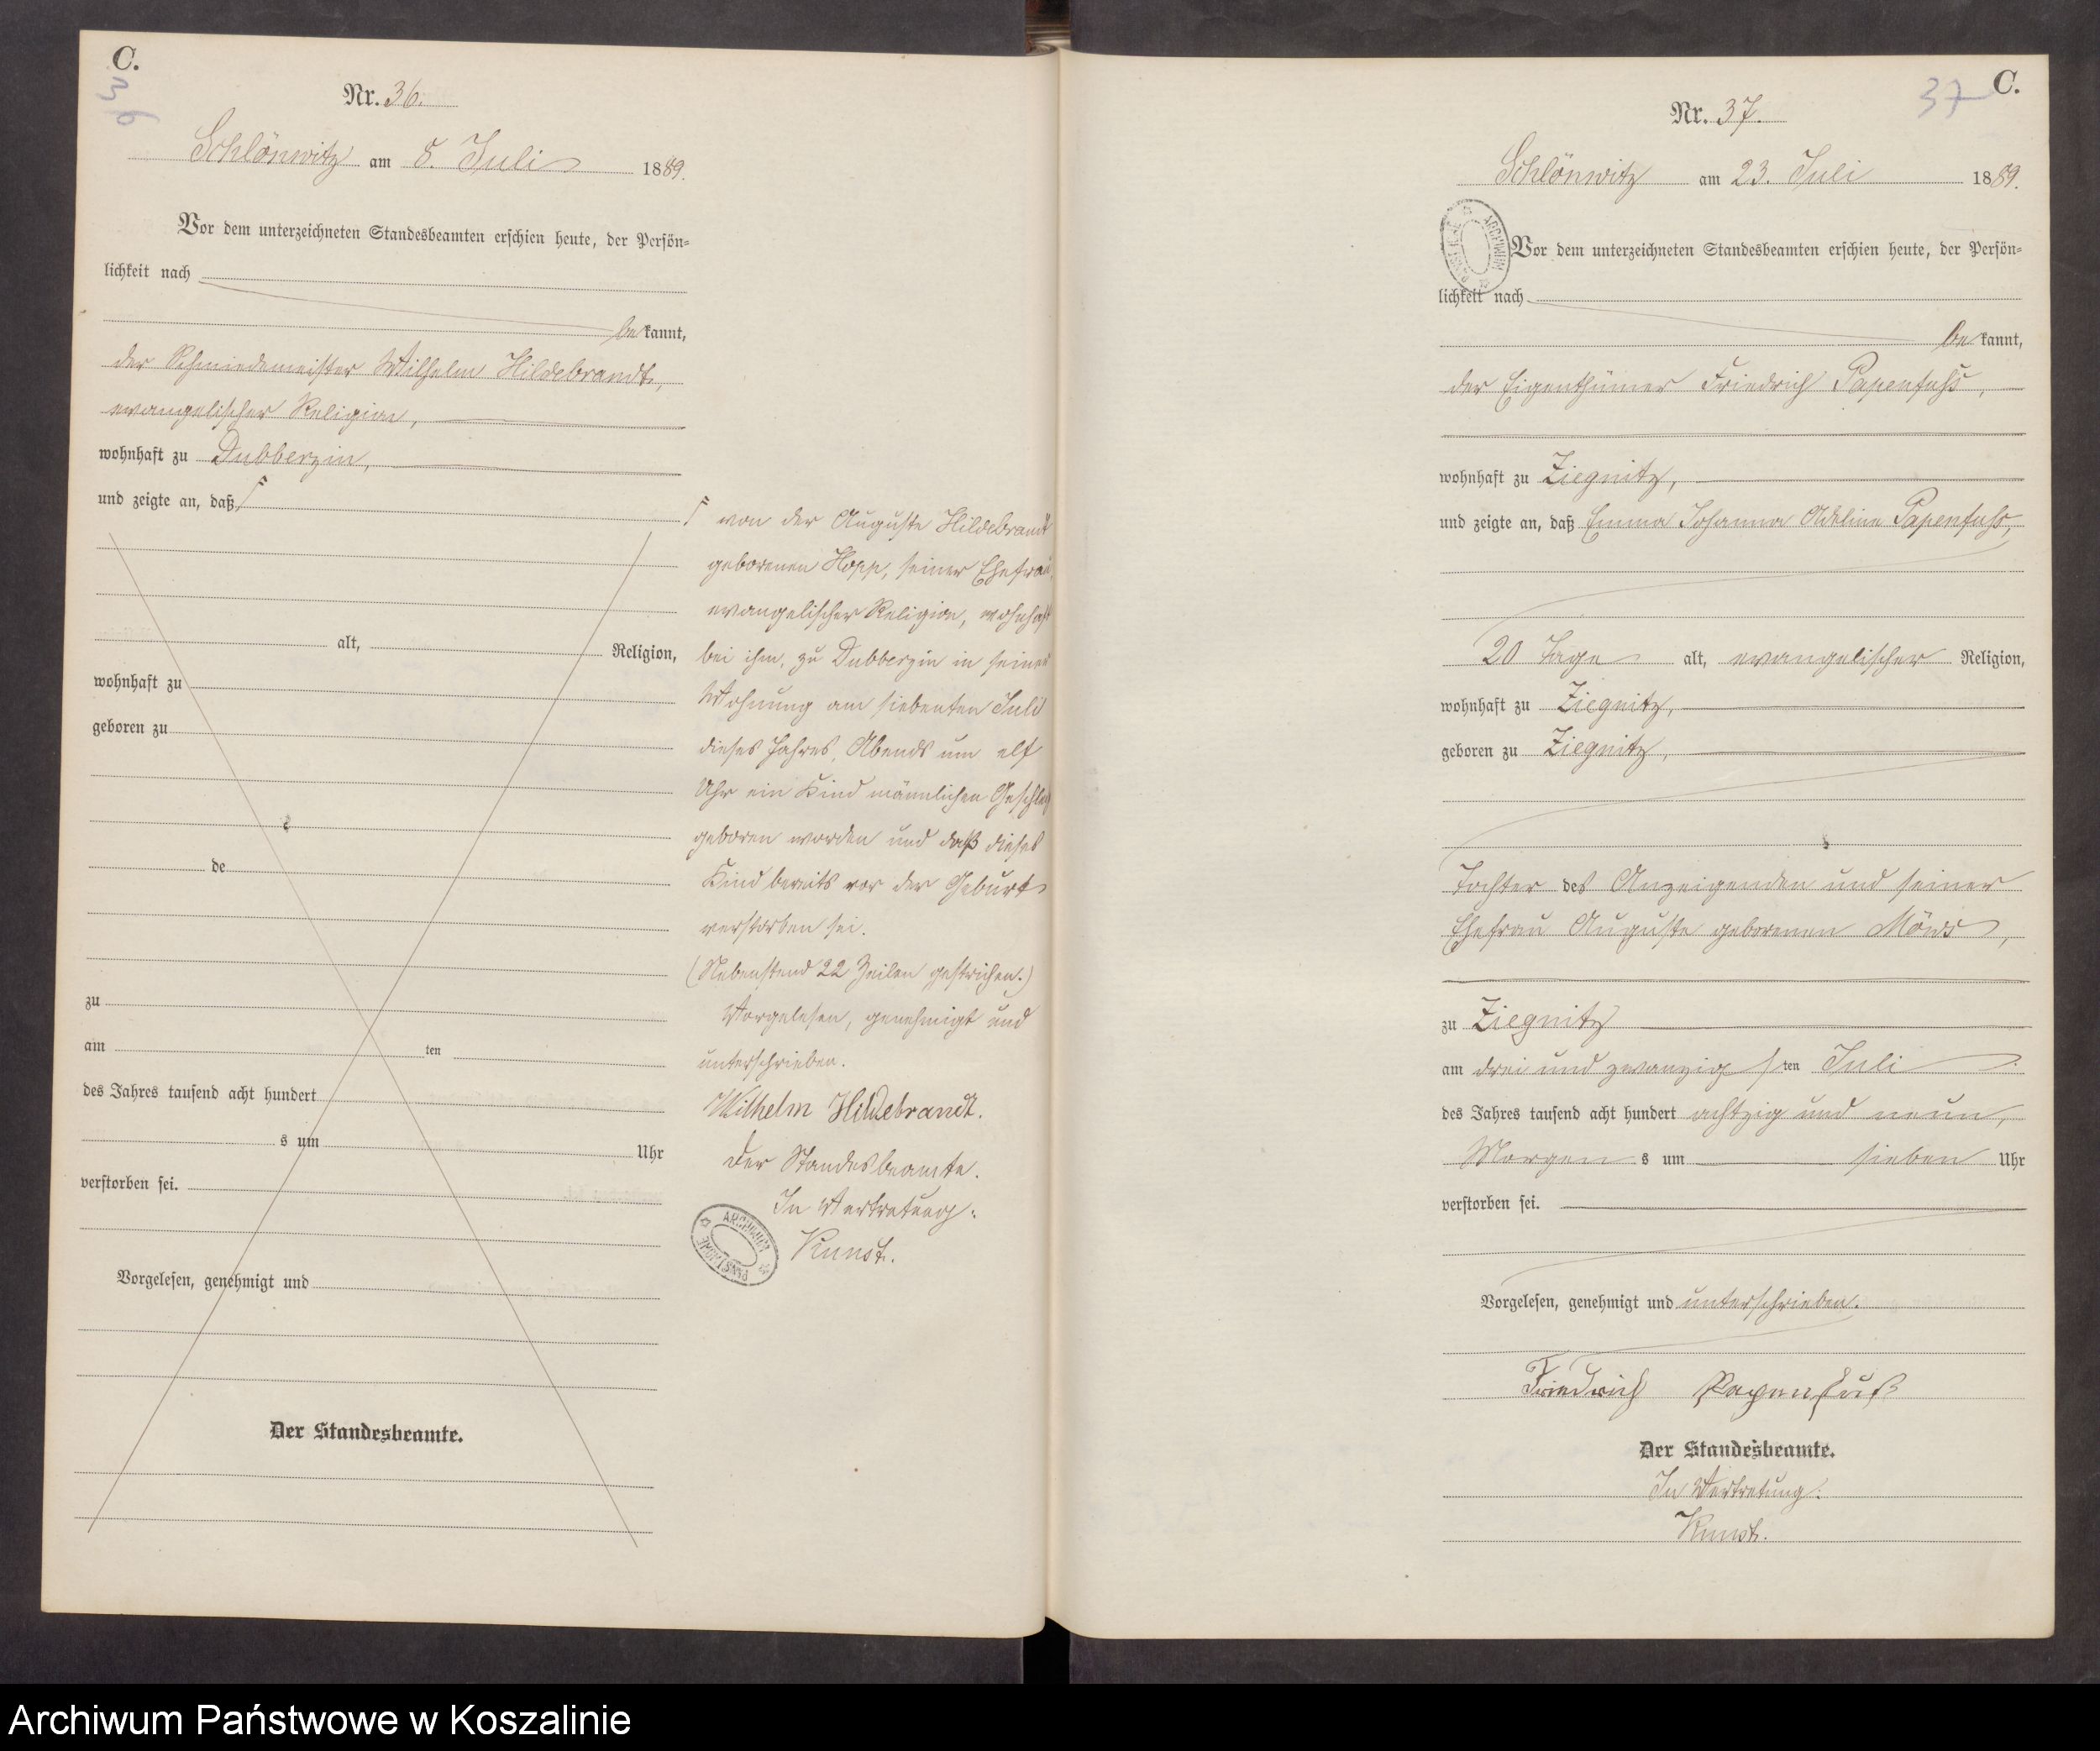 C.
36
Nr. 36.
Schlönwitz am 8. Juli 1889.
Vor dem unterzeichneten Standesbeamten erschien heute, der Persön-
lichkeit nach
be kannt,
der Schmiedemeister Wilhelm Hildebrandt,
evangelischer Religion,
wohnhaft zu Dubberzin,
und zeigte an, daß
alt, Religion,
wohnhaft zu
geboren zu
de
zu
am ten
des Jahres tausend acht hundert
s um Uhr
verstorben sei.
Vorgelesen, genehmigt und
Der Standesbeamte.
von der Auguste Hildebrandt
geborenen Hopp, seiner Ehefrau,
evangelischer Religion, wohnhaft
bei ihm, zu Dubberzin in seiner
Wohnung am siebenten Juli
dieses Jahres, Abends um elf
Uhr ein Kind männlichen Geschlechts
geboren worden und daß dieses
Kind bereits vor der Geburt
verstorben sei.
(Nebenstend 22 Zeilen gestrichen.)
Vorgelesen, genehmigt und
unterschrieben.
Wilhelm Hildebrandt.
Der Standesbeamte.
In Vertretung:
Kunst.
ARCHIWUM PAŃSTWOWE
37
C.
Nr. 37.
Schlönwitz am 23. Juli 1889.
ARCHIWUM PAŃSTWOWE
Vor dem unterzeichneten Standesbeamten erschien heute, der Persön-
lichkeit nach
be kannt,
der Eigenthümer Friedrich Papenfuhs,
wohnhaft zu Ziegnitz,
und zeigte an, daß Emma Johanna Adeline Papenfuhs,
20 Tage alt, evangelischer Religion,
wohnhaft zu Ziegnitz,
geboren zu Ziegnitz,
Tochter des Anzeigenden und seiner
Ehefrau Auguste geborenen
zu Ziegnitz
am drei und zwanzigs ten Juli
des Jahres tausend acht hundert achtzig und neun,
Morgen s um sieben Uhr
verstorben sei.
Vorgelesen, genehmigt und unterschrieben.
Friedrich Papenfuß
Der Standesbeamte.
In Vertretung:
Kunst.
Archiwum Państwowe w Koszalinie